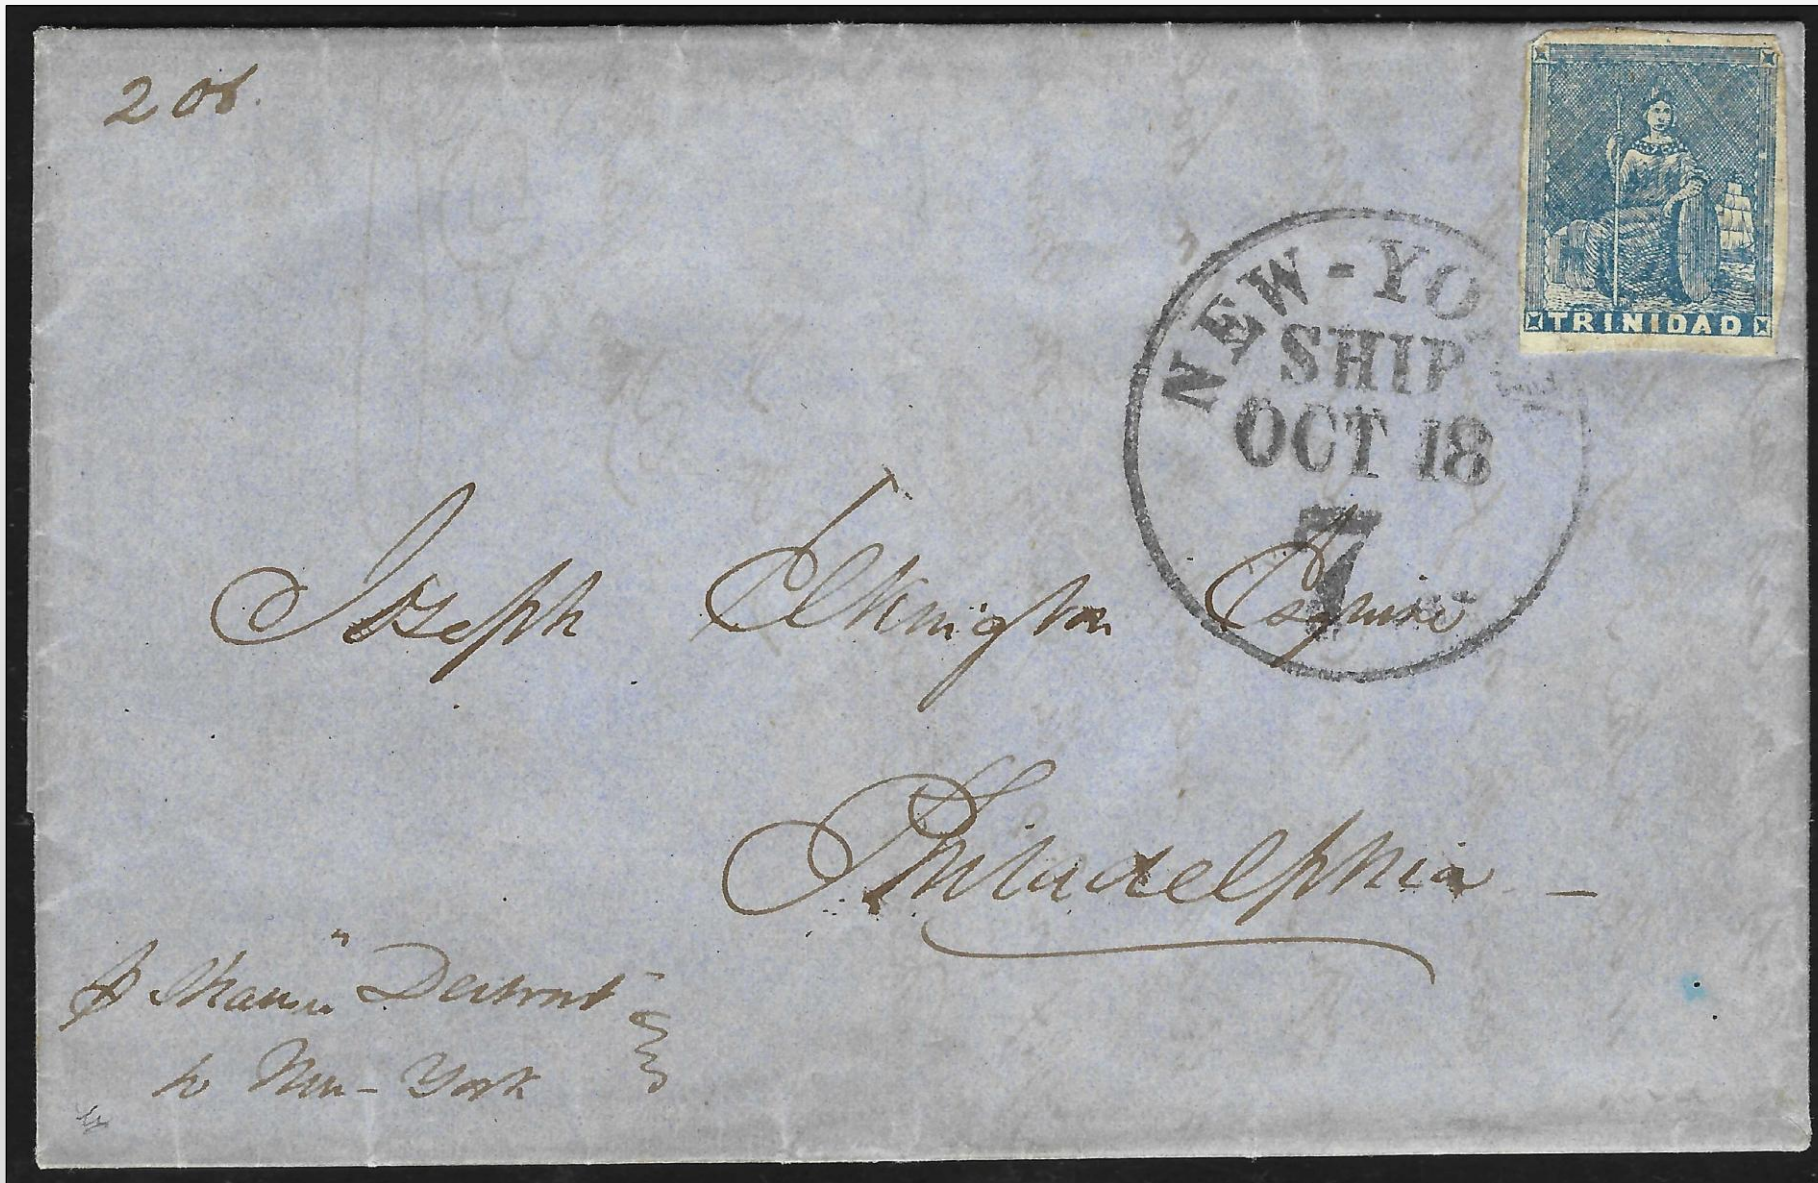 TRINIDAD
NEW-YORK
SHIP
OCT 18
7
Joseph Elkington Esquire
Philadelphia –
"Detroit"
to New-York